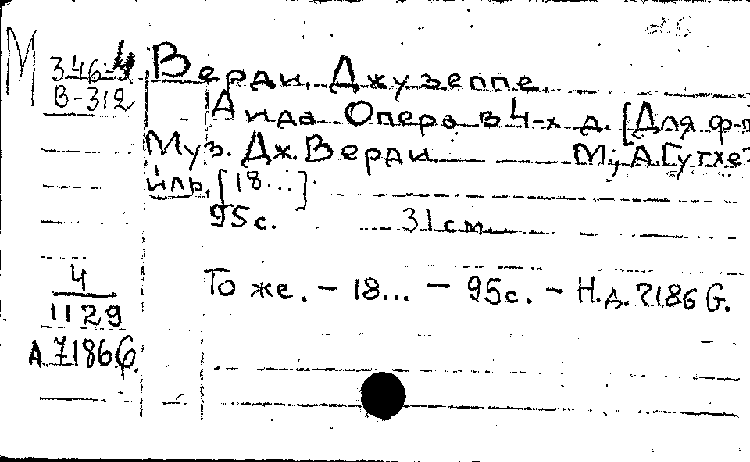 М 346-4 Верди, Джузеппе.
В-312
Аида. Опера в 4-х д. [Для ф-п
Муз. Дж. Верди М., А. Гутхе
[18...]
95 с. 31 см.
То же. – 18... – 95 с. – Н.д. 7186 G.
4
1129
А 7186 G.